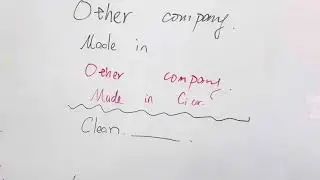 Other company.
Made in
Other company.
Made in
Clean.